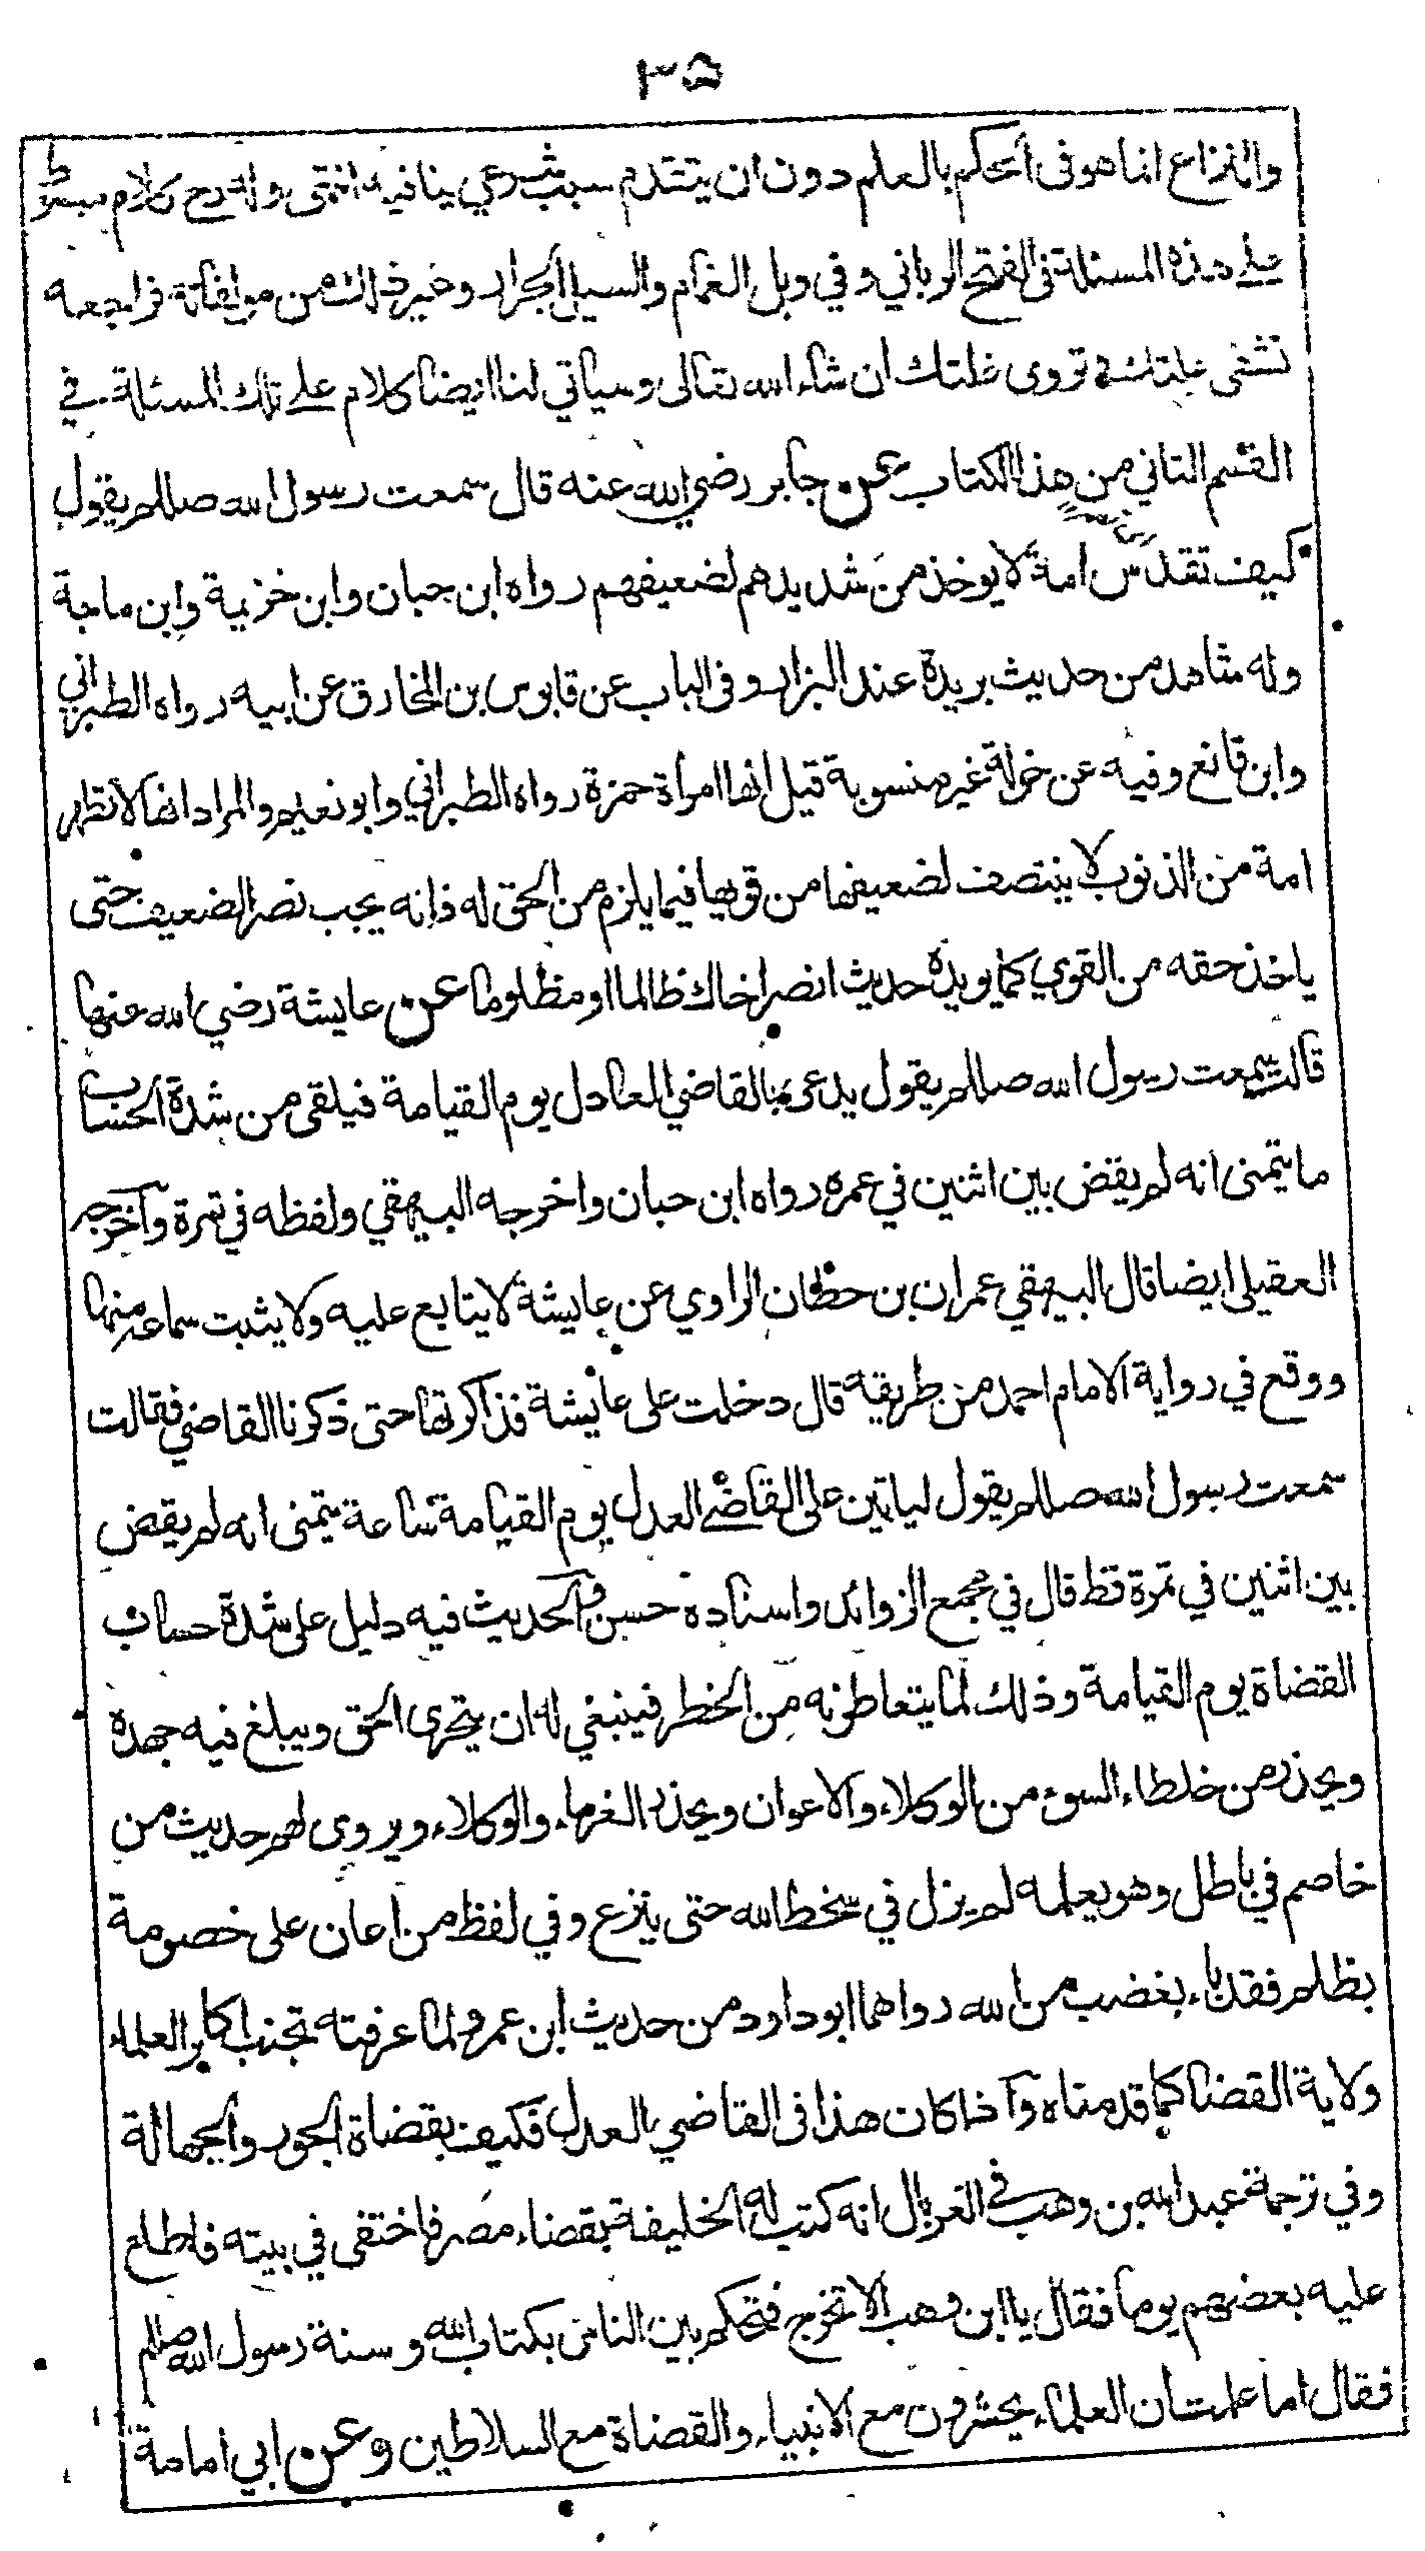 ٣٥
والنزاع انما هو فى الحكم بالعلم دون ان يتقدم سبب شرعي ينافيه انتهى وله رح كلام مبسوط
على هذه المسئلة فى الفتح الرباني وفي وبل الغمام والسيل الجرار وغير ذلك من مولفاته فراجعه
تشفى علتك وتروى غلتك ان شاء الله تعالى وسياتي لنا ايضا كلام على تلك المسئلة في
القسم الثاني من هذا الكتاب عن جابر رضي الله عنه قال سمعت رسول الله صللم يقول
كيف تقدس امة لا يوخذ من شديدهم لضعيفهم رواه ابن حبان وابن خزيمة وابن ماجة
وله شاهد من حديث بريدة عند البزار وفى الباب عن قابوس بن المخارق عن ابيه رواه الطبراني
وابن قانع وفيه عن خولة غير منسوبة قيل انها امراة حمزة رواه الطبراني وابو نعيم والمراد انها لا تطهر
امة من الذنوب لا ينتصف لضعيفها من قويها فيما يلزم من الحق له فانه يجب نصر الضعيف حتى
ياخذ حقه من القوي كما يويده حديث انصر اخاك ظالما او مظلوما عن عايشة رضي الله عنها
قالت سمعت رسول الله صللم يقول يدعى بالقاضي العادل يوم القيامة فيلقى من شدة الحساب
ما يتمنى انه لم يقض بين اثنين في عمره رواه ابن حبان واخرجه البيهقي ولفظه في تمرة وآخرجه
العقيلى ايضا قال البيهقي عمران بن حطان الراوي عن عايشة لا يتابع عليه ولا يثبت سماعه منها
ووقع في رواية الامام احمد من طريقه قال دخلت على عايشة فذاكرتها حتى ذكرنا القاضي فقالت
سمعت رسول الله صللم يقول لياتين على القاضي العدل يوم القيامة ساعة يتمنى انه لم يقض
بين اثنين في تمرة قط قال في مجمع الزوائد واسناده حسن والحديث فيه دليل على شدة حساب
القضاة يوم القيامة وذلك لما يتعاطونه من الخطر فينبغي له ان يتحرى الحق ويبلغ فيه جهده
ويحذر من خلطاء السوء من الوكلاء والاعوان ويحذر الغرماء والوكلاء ويروى لهم حديث من
خاصم في باطل وهو يعلمه لم يزل في سخط الله حتى ينزع وفي لفظ من اعان على خصومة
بظلم فقد باء بغضب من الله رواهما ابو داود من حديث ابن عمر ولما عرفته تجنب اكابر العلماء
ولاية القضا كما قدمناه وآذا كان هذا فى القاضي العدل فكيف بقضاة الجور والجهالة
وفي ترجمة عبد الله بن وهب في الغربال انه كتب له الخليفة بقضاء مصر فاختفى في بيته فاطلع
عليه بعضهم يوما فقال يا ابن وهب الا تخرج فتحكم بين الناس بكتاب الله وسنة رسول الله صللم
فقال اما علمت ان العلماء يحشرون مع الانبياء والقضاة مع السلاطين وعن ابي امامة